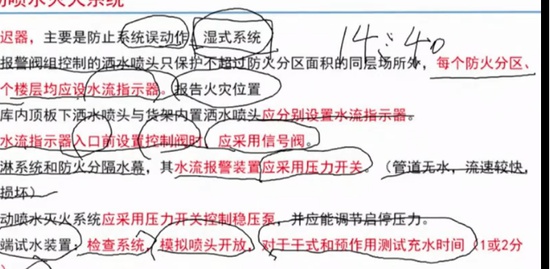 动喷水灭火系统
迟器，主要是防止系统误动作，湿式系统
14:40
报警阀组控制的洒水喷头只保护不超过防火分区面积的同层场所外，每个防火分区、
个楼层均应设水流指示器。报告火灾位置
库内顶板下洒水喷头与货架内置洒水喷头应分别设置水流指示器。
水流指示器入口前设置控制阀时，应采用信号阀。
淋系统和防火分隔水幕，其水流报警装置应采用压力开关。（管道无水，流速较快，
损坏）
动喷水灭火系统应采用压力开关控制稳压泵，并应能调节启停压力。
端试水装置：检查系统，模拟喷头开放，对于干式和预作用测试充水时间（1或2分